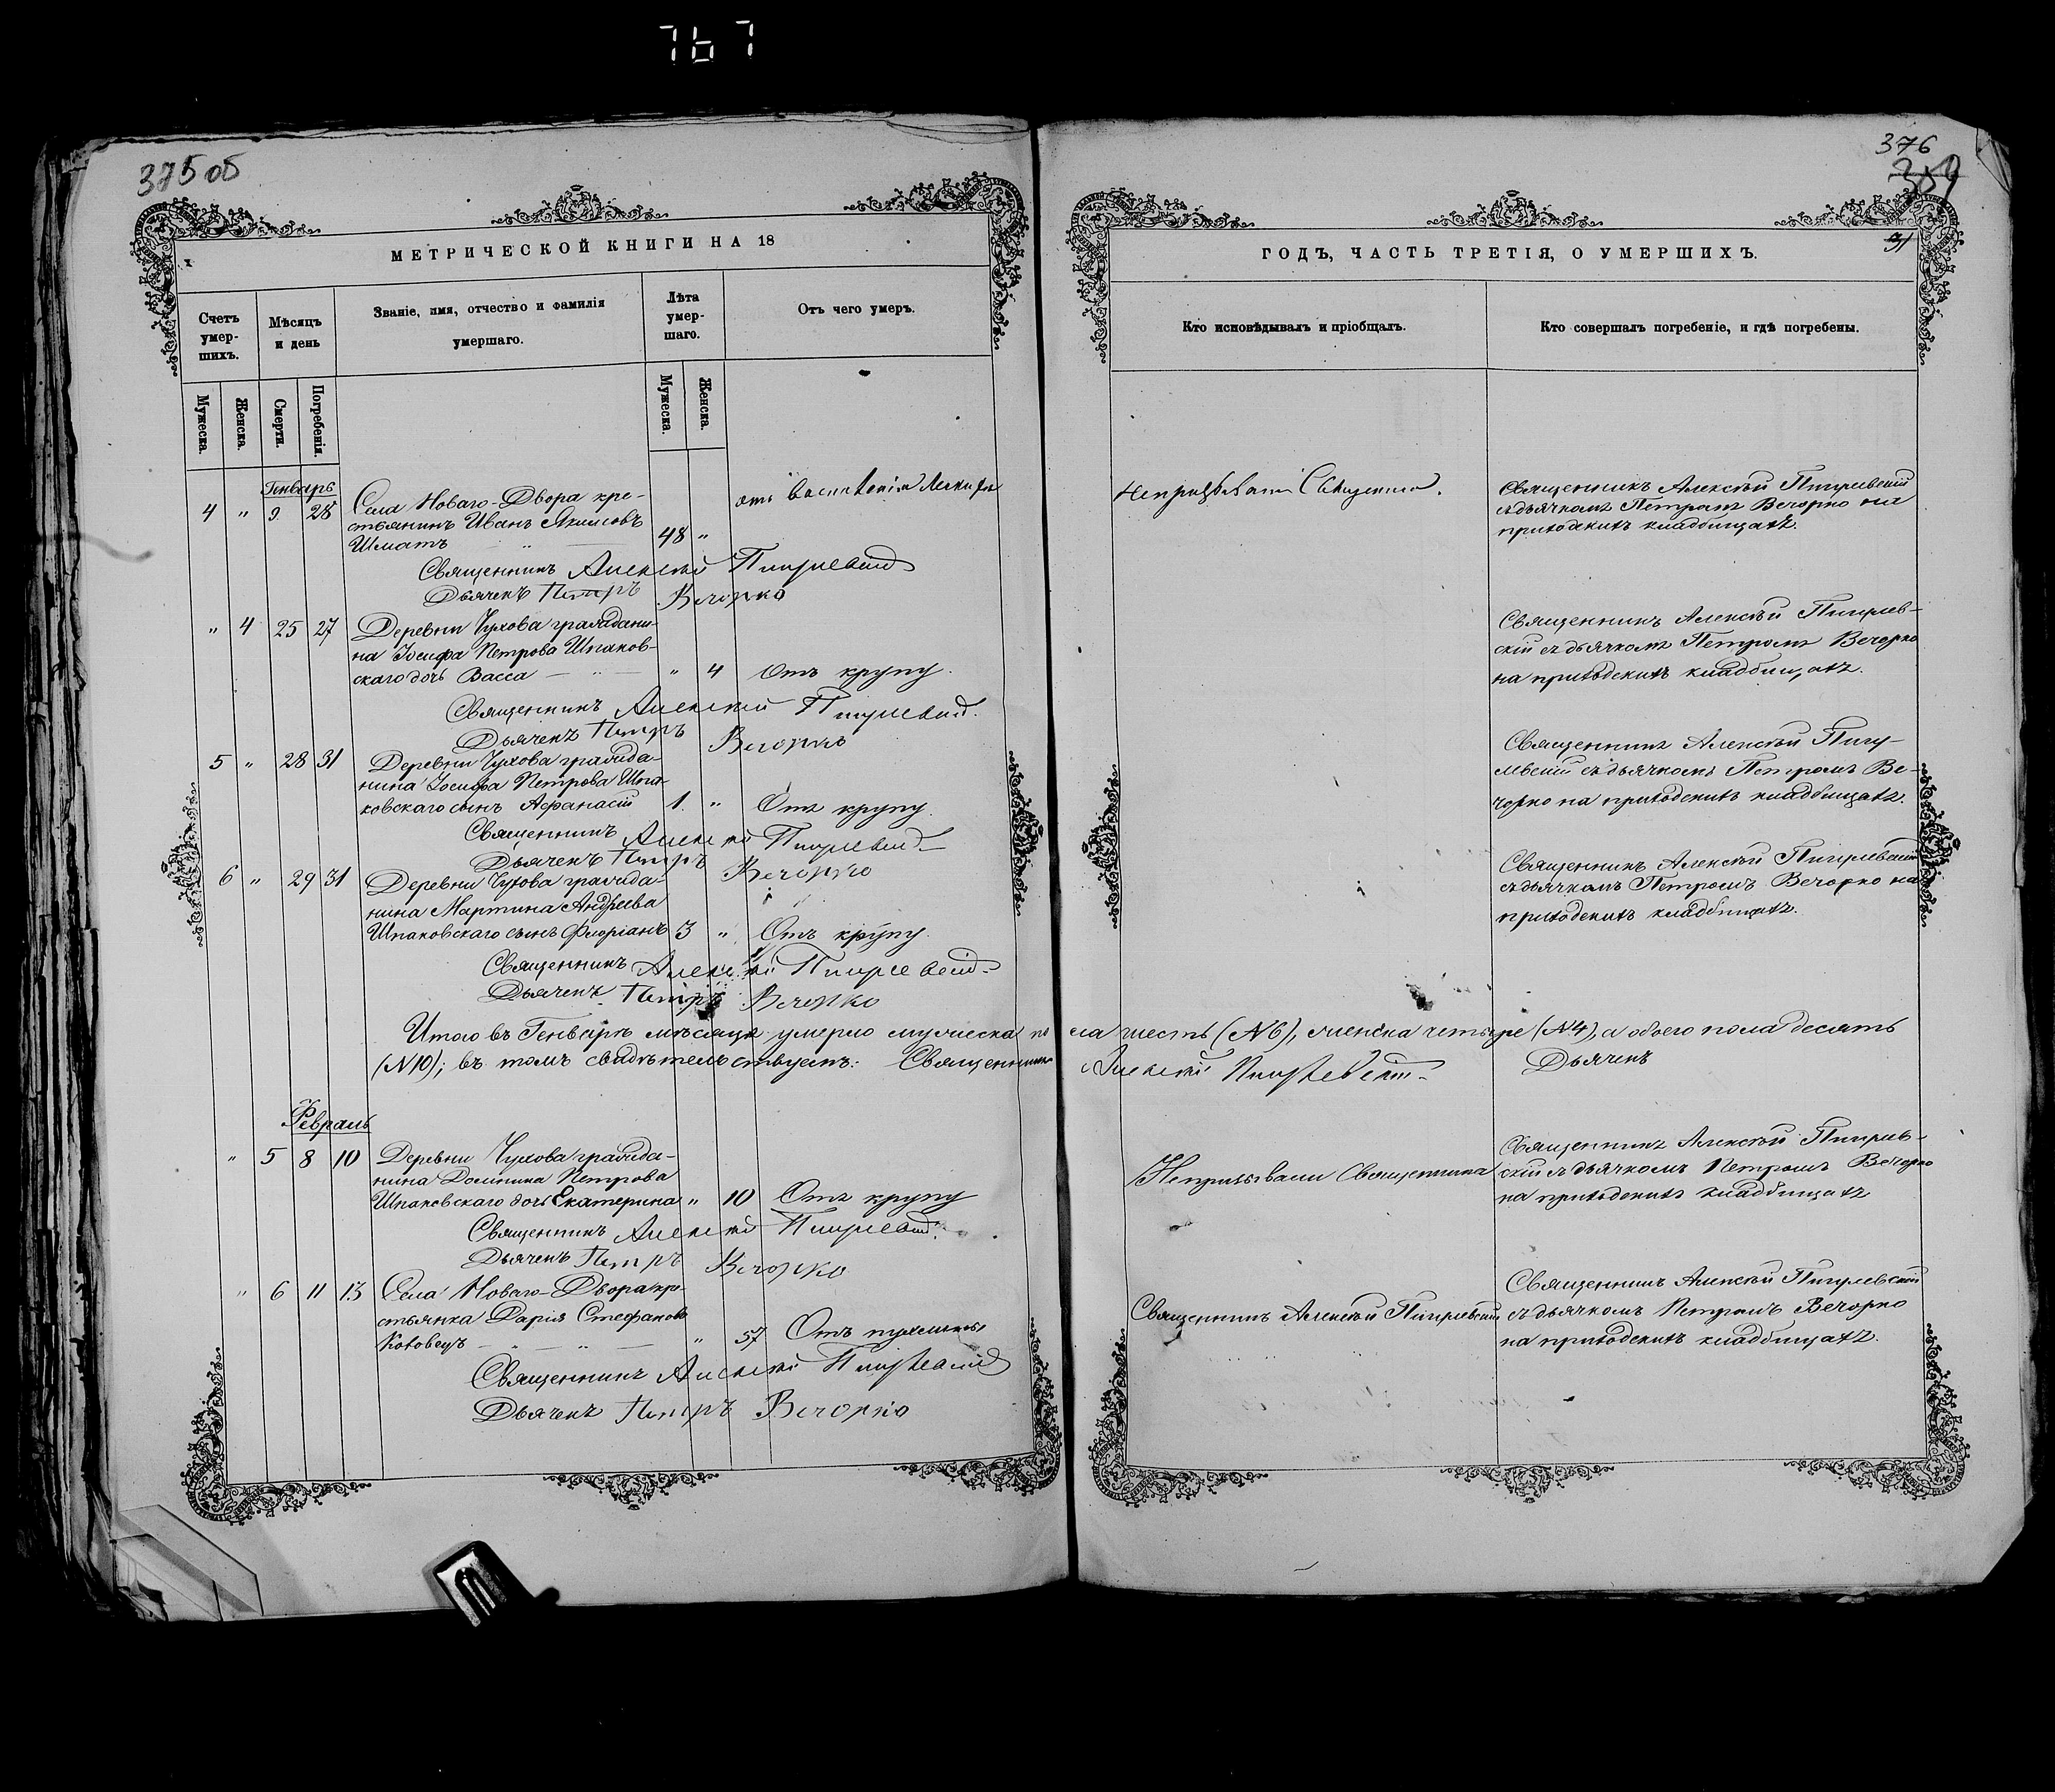 767
375 об
МЕТРИЧЕСКОЙ КНИГИ НА 18
Счетъ умер-шихъ.
Мѣсяцъ и день
Званіе, имя, отчество и фамилія умершаго.
Лѣта умер-шаго.
Отъ чего умеръ.
Мужеска.
Женска.
Смерти.
Погребенія.
Мужеска.
Женска.
Генварь
4 " 9. 28 Села Новаго-Двора кре-
стьянинъ Иванъ Якимовъ
Шматъ — " — 48 "
отъ воспаленія легкихъ
Священникъ Алексѣй Пигулевскій
Дьячекъ Петръ Вечорко
" 4 25 27 Деревни Чухова граждани-
на Іосифа Петрова Шпаков-
скаго дочь Васса — " — " 4 Отъ крупу.
Священникъ Алексѣй Пигулевскій.
Дьячекъ Петръ Вечорко
5 " 28 31 Деревни Чухова гражда-
нина Іосифа Петрова Шпа-
ковскаго сынъ Афанасій 1. " Отъ крупу.
Священникъ Алексѣй Пигулевскій
Дьячекъ Петръ Вечорко
6 " 29 31 Деревни Чухова гражда-
нина Мартина Андреева
Шпаковскаго сынъ Флоріанъ 3 " Отъ крупу.
Священникъ Алексѣй Пигулевскій
Дьячекъ Петръ Вечорко
Итого въ Генварѣ мѣсяцѣ умерло мужеска по
(№10); въ томъ свидѣтельствуемъ: Священникъ
Февраль
" 5 8 10 Деревни Чухова гражда-
нина Доминика Петрова
Шпаковскаго дочь Екатерина " 10 Отъ крупу
Священникъ Алексѣй Пигулевскій.
Дьячекъ Петръ Вечорко
" 6 11 13 Села Новаго-Двора кре-
стьянка Дарія Стефанова
— " — " 57 Отъ
Священникъ Алексѣй Пигулевскій
Дьячекъ Петръ Вечорко
376
ГОДЪ, ЧАСТЬ ТРЕТІЯ, О УМЕРШИХЪ.
Кто исповѣдывалъ и пріобщалъ.
Кто совершалъ погребеніе, и гдѣ погребены.
Непризывали Священника.
Священникъ Алексѣй Пигулевскій
съ дьячкомъ Петромъ Вечорко на
приходскихъ кладбищахъ.
Священникъ Алексѣй Пигулев-
скій съ дьячкомъ Петромъ Вечорко
на приходскихъ кладбищахъ.
Священникъ Алексѣй Пигу-
левскій съ дьячкомъ Петромъ Ве-
чорко на приходскихъ кладбищахъ.
Священникъ Алексѣй Пигулевскій
съ дьячкомъ Петромъ Вечорко на
приходскихъ кладбищахъ.
ла шесть (№6), женска четыре (№4), а обоего пола десять
Алексѣй Пигулевскій Дьячекъ
Непризывали Священника
Священникъ Алексѣй Пигулев-
скій съ дьячкомъ Петромъ Вечорко
на приходскихъ кладбищахъ
Священникъ Алексѣй Пигулевскій
Священникъ Алексѣй Пигулевскій
съ дьячкомъ Петромъ Вечорко
на приходскихъ кладбищахъ.